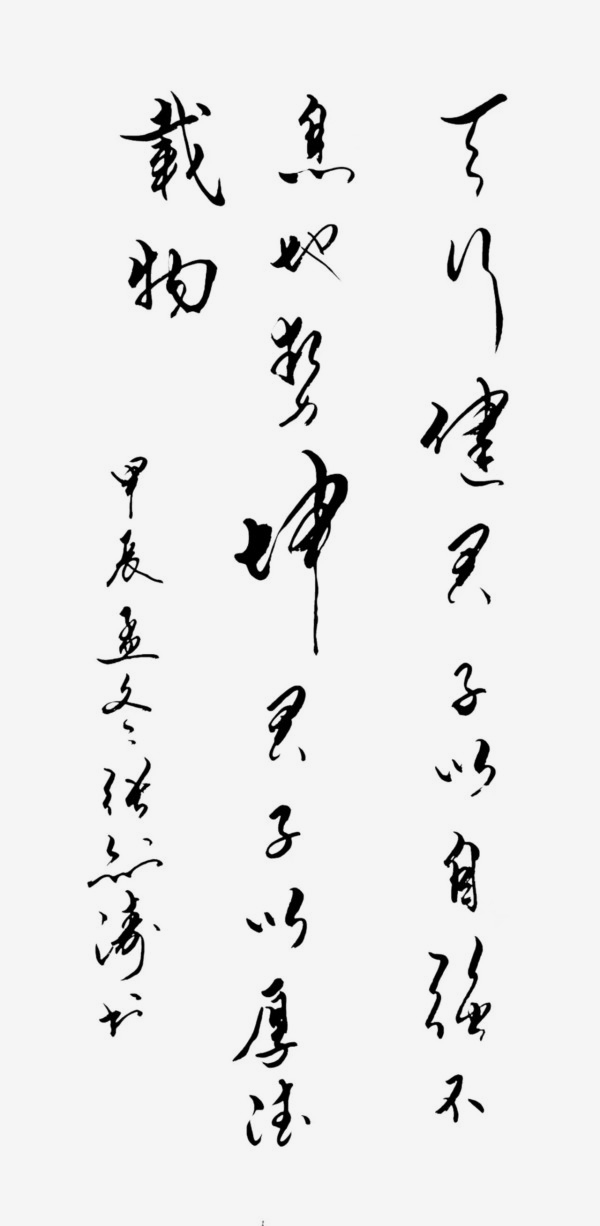 天行健君子以自强不
息地势坤君子以厚德
载物
甲辰孟冬张烈涛书